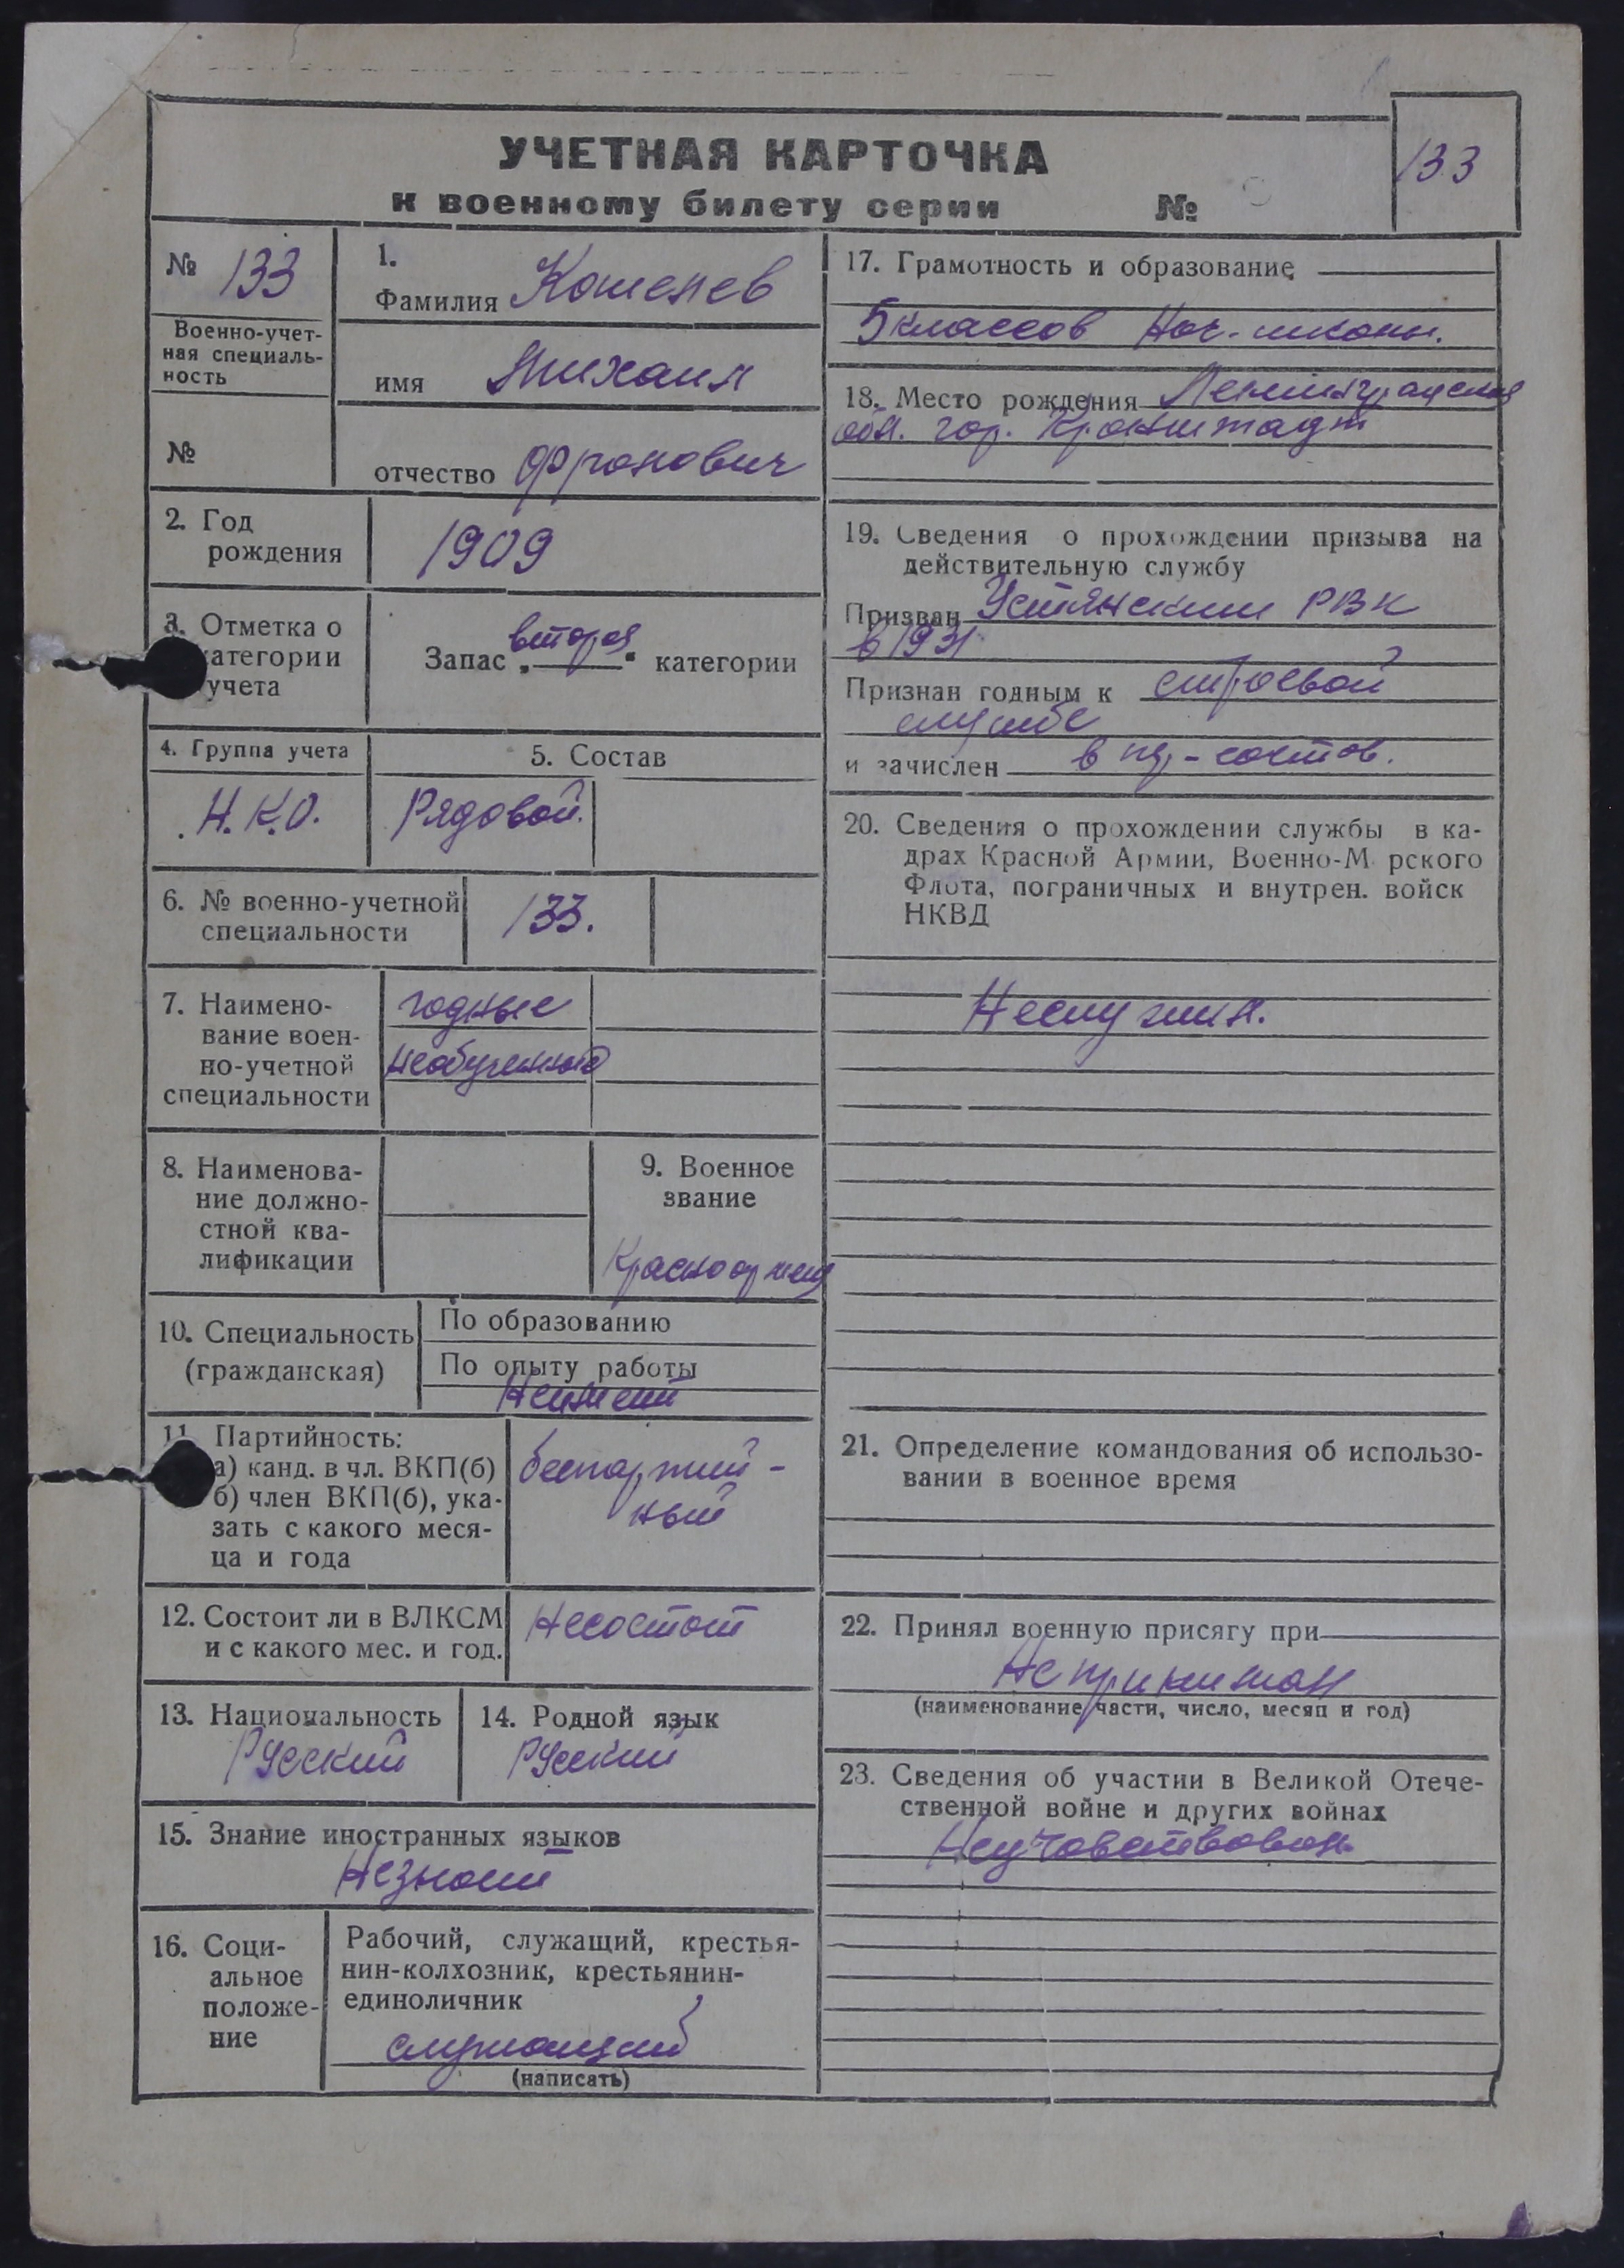 УЧЕТНАЯ КАРТОЧКА
к военному билету серии №
133
№ 133
Военно-учет-
ная специаль-
ность
№
1.
Фамилия Кошелев
имя Михаил
отчество
2. Год
рождения
1909
3. Отметка о
категории
учета
Запас „вторая“ категории
4. Группа учета
Н.К.О.
5. Состав
Рядовой.
6. № военно-учетной
специальности
133.
7. Наимено-
вание воен-
но-учетной
специальности
годные
необученные
8. Наименова-
ние должно-
стной ква-
лификации
9. Военное
звание
Красноармеец
10. Специальность
(гражданская)
По образованию
По опыту работы
Неимеет
11. Партийность:
а) канд. в чл. ВКП(б)
б) член ВКП(б), ука-
зать с какого меся-
ца и года
беспартий-
ный
12. Состоит ли в ВЛКСМ
и с какого мес. и год.
Несостоит
13. Национальность
Русский
14. Родной язык
Русский
15. Знание иностранных языков
Незнает
16. Соци-
альное
положе-
ние
Рабочий, служащий, крестья-
нин-колхозник, крестьянин-
единоличник
служащий
(написать)
17. Грамотность и образование
5 классов Нач. школы.
18. Место рождения Ленинградская
обл. гор. Кронштадт
19. Сведения о прохождении призыва на
действительную службу
Призван Устянским РВК
в 1931
Признан годным к строевой
службе
и зачислен в
20. Сведения о прохождении службы в ка-
драх Красной Армии, Военно-М рского
Флота, пограничных и внутрен. войск
НКВД
Неслужил.
21. Определение командования об использо-
вании в военное время
22. Принял военную присягу при
Не принимал
(наименование части, число, месяц и год)
23. Сведения об участии в Великой Отече-
ственной войне и других войнах
Неучавствовал